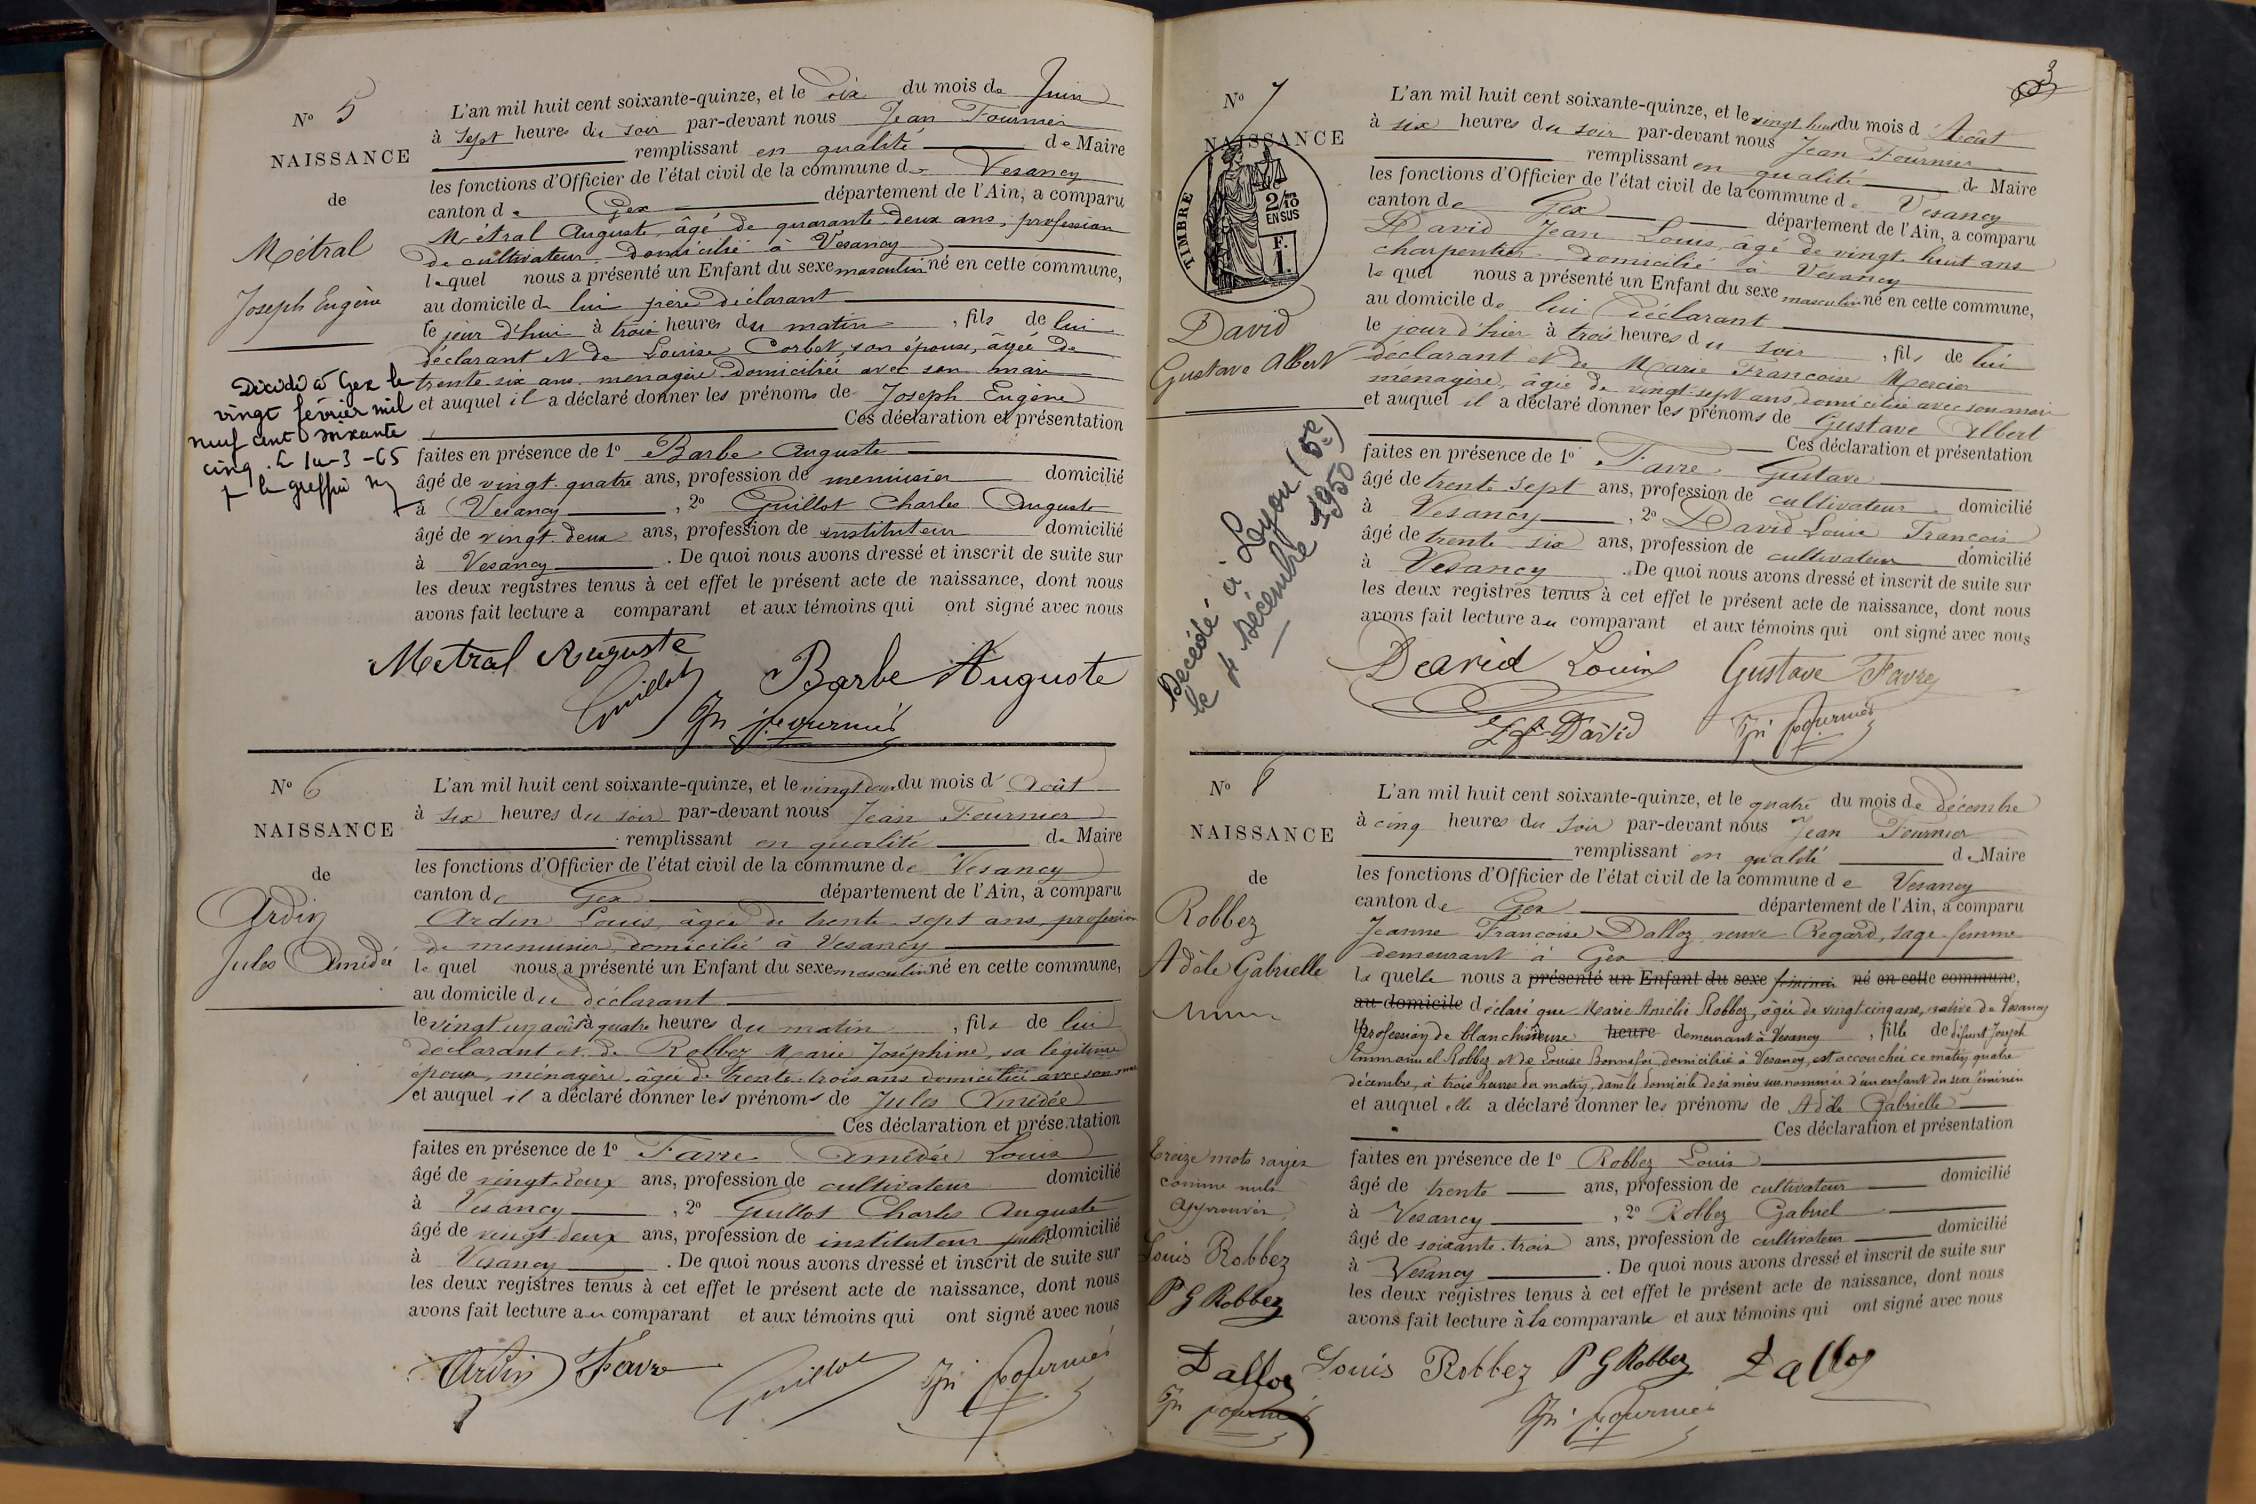 N° 5
NAISSANCE
de
Métral
Joseph Eugène
Décédé à Gex le
vingt février mil
neuf cent soixante
cinq. Le 10-3-65
le greffier
L'an mil huit cent soixante-quinze, et le dix du mois de Juin
à sept heures du soir par-devant nous Jean Fournier
remplissant en qualité de Maire
les fonctions d'Officier de l'état civil de la commune de Vesancy
canton de Gex département de l'Ain, a comparu
Métral Auguste, âgé de quarante deux ans, profession
de cultivateur domicilié à Vésancy
lequel nous a présenté un Enfant du sexe masculin né en cette commune,
au domicile de lui père déclarant
le jour d'hui à trois heures du matin, fils de lui
déclarant et de Louise Corbet, son épouse, âgée de
trente-six ans ménagère domiciliée avec son mari
et auquel il a déclaré donner les prénoms de Joseph Eugène
Ces déclaration et présentation
faites en présence de 1° Barbe Auguste
âgé de vingt-quatre ans, profession de menuisier domicilié
à Vesancy, 2° Guillot Charles Auguste
âgé de vingt-deux ans, profession de instituteur domicilié
à Vesancy. De quoi nous avons dressé et inscrit de suite sur
les deux registres tenus à cet effet le présent acte de naissance, dont nous
avons fait lecture a comparant et aux témoins qui ont signé avec nous
Métral Auguste Barbe Auguste
Guillot Jn Fournier
N° 6
NAISSANCE
de
Ardin
Jules Amédée
L'an mil huit cent soixante-quinze, et le vingt deux du mois d'Août
à six heures du soir par-devant nous Jean Fournier
remplissant en qualité de Maire
les fonctions d'Officier de l'état civil de la commune de Vesancy
canton de Gex département de l'Ain, a comparu
Ardin Louis, âgée de trente-sept ans, profession
de menuisier domicilié à Vesancy
lequel nous a présenté un Enfant du sexe masculin né en cette commune,
au domicile du déclarant
le vingt un août à quatre heures du matin, fils de lui
déclarant et de Robbez Marie Joséphine, sa légitime
épouse, ménagère, âgée de trente-trois ans domiciliée avec son mari
et auquel il a déclaré donner les prénoms de Jules Amédée
Ces déclaration et présentation
faites en présence de 1° Favre Amédée Louis
âgé de vingt-deux ans, profession de cultivateur domicilié
à Vesancy, 2° Guillot Charles Auguste
âgé de vingt-deux ans, profession de instituteur public domicilié
à Vesancy. De quoi nous avons dressé et inscrit de suite sur
les deux registres tenus à cet effet le présent acte de naissance, dont nous
avons fait lecture au comparant et aux témoins qui ont signé avec nous
Ardin Favre Guillot Jn Fournier
3
N° 7
NAISSANCE
TIMBRE
2/10
EN SUS
F.
1.
David
Gustave Albert
Décédé à Lyon (5e)
le 4 Décembre 1950
L'an mil huit cent soixante-quinze, et le vingt huit du mois d'Août
à six heures du soir par-devant nous Jean Fournier
remplissant en qualité de Maire
les fonctions d'Officier de l'état civil de la commune de Vesancy
canton de Gex département de l'Ain, a comparu
David Jean Louis, âgé de vingt-huit ans
charpentier domicilié à Vésancy
lequel nous a présenté un Enfant du sexe masculin né en cette commune,
au domicile de lui déclarant
le jour d'hier à trois heures du soir, fils de lui
déclarant et de Marie Françoise Mercier
ménagère, âgée de vingt-sept ans domiciliée avec son mari
et auquel il a déclaré donner les prénoms de Gustave Albert
Ces déclaration et présentation
faites en présence de 1° Favre Gustave
âgé de trente sept ans, profession de cultivateur domicilié
à Vesancy, 2° David Louis François
âgé de trente six ans, profession de cultivateur domicilié
à Vesancy. De quoi nous avons dressé et inscrit de suite sur
les deux registres tenus à cet effet le présent acte de naissance, dont nous
avons fait lecture au comparant et aux témoins qui ont signé avec nous
David Louis Gustave Favre
L f David Jn Fournier
N° 8
NAISSANCE
de
Robbez
Adèle Gabrielle
Treize mots rayés
comme nuls
approuvés
Louis Robbez
P G Robbez
Dalloz
Jn Fournier
L'an mil huit cent soixante-quinze, et le quatre du mois de décembre
à cinq heures du soir par-devant nous Jean Fournier
remplissant en qualité de Maire
les fonctions d'Officier de l'état civil de la commune de Vesancy
canton de Gex département de l'Ain, a comparu
Jeanne Françoise Dalloz veuve Regard, sage-femme
demeurant à Gex
laquelle nous a présenté un Enfant du sexe féminin né en cette commune,
au domicile déclaré que Marie Amélie Robbez, âgée de vingt-cinq ans, native de Vesancy
profession de blanchisseuse heure demeurant à Vesancy, fille de défunt Joseph
Emmanuel Robbez et de Louise Bonnefoi domiciliée à Vesancy, est accouchée ce matin quatre
décembre, à trois heures du matin, dans le domicile de sa mère susnommée d'un enfant du sexe féminin
et auquel elle a déclaré donner les prénoms de Adèle Gabrielle
Ces déclaration et présentation
faites en présence de 1° Robbez Louis
âgé de trente ans, profession de cultivateur domicilié
à Vesancy, 2° Robbez Gabriel
âgé de soixante-trois ans, profession de cultivateur domicilié
à Vesancy. De quoi nous avons dressé et inscrit de suite sur
les deux registres tenus à cet effet le présent acte de naissance, dont nous
avons fait lecture à la comparante et aux témoins qui ont signé avec nous
Louis Robbez P G Robbez Dalloz
Jn Fournier